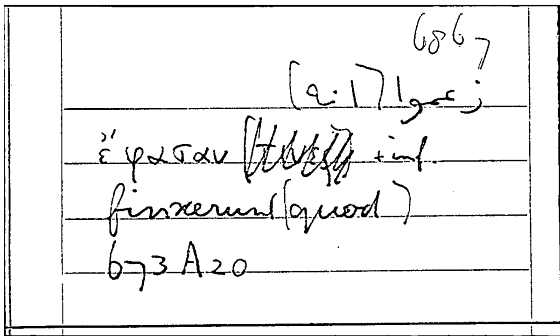 6867
(2.1)
ἔφασαν + inf.
finxerunt (quod)
673 A20